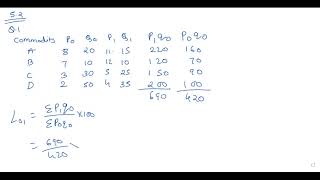 5.2
Q.1
Commodity P0 q0 P1 q1 P1q0 P0q0
A 8 20 11 15 220 160
B 7 10 12 10 120 70
C 3 30 5 25 150 90
D 2 50 4 35 200 100
690 420
L01 = ΣP1q0 / ΣP0q0 × 100
= 690 / 420 ×